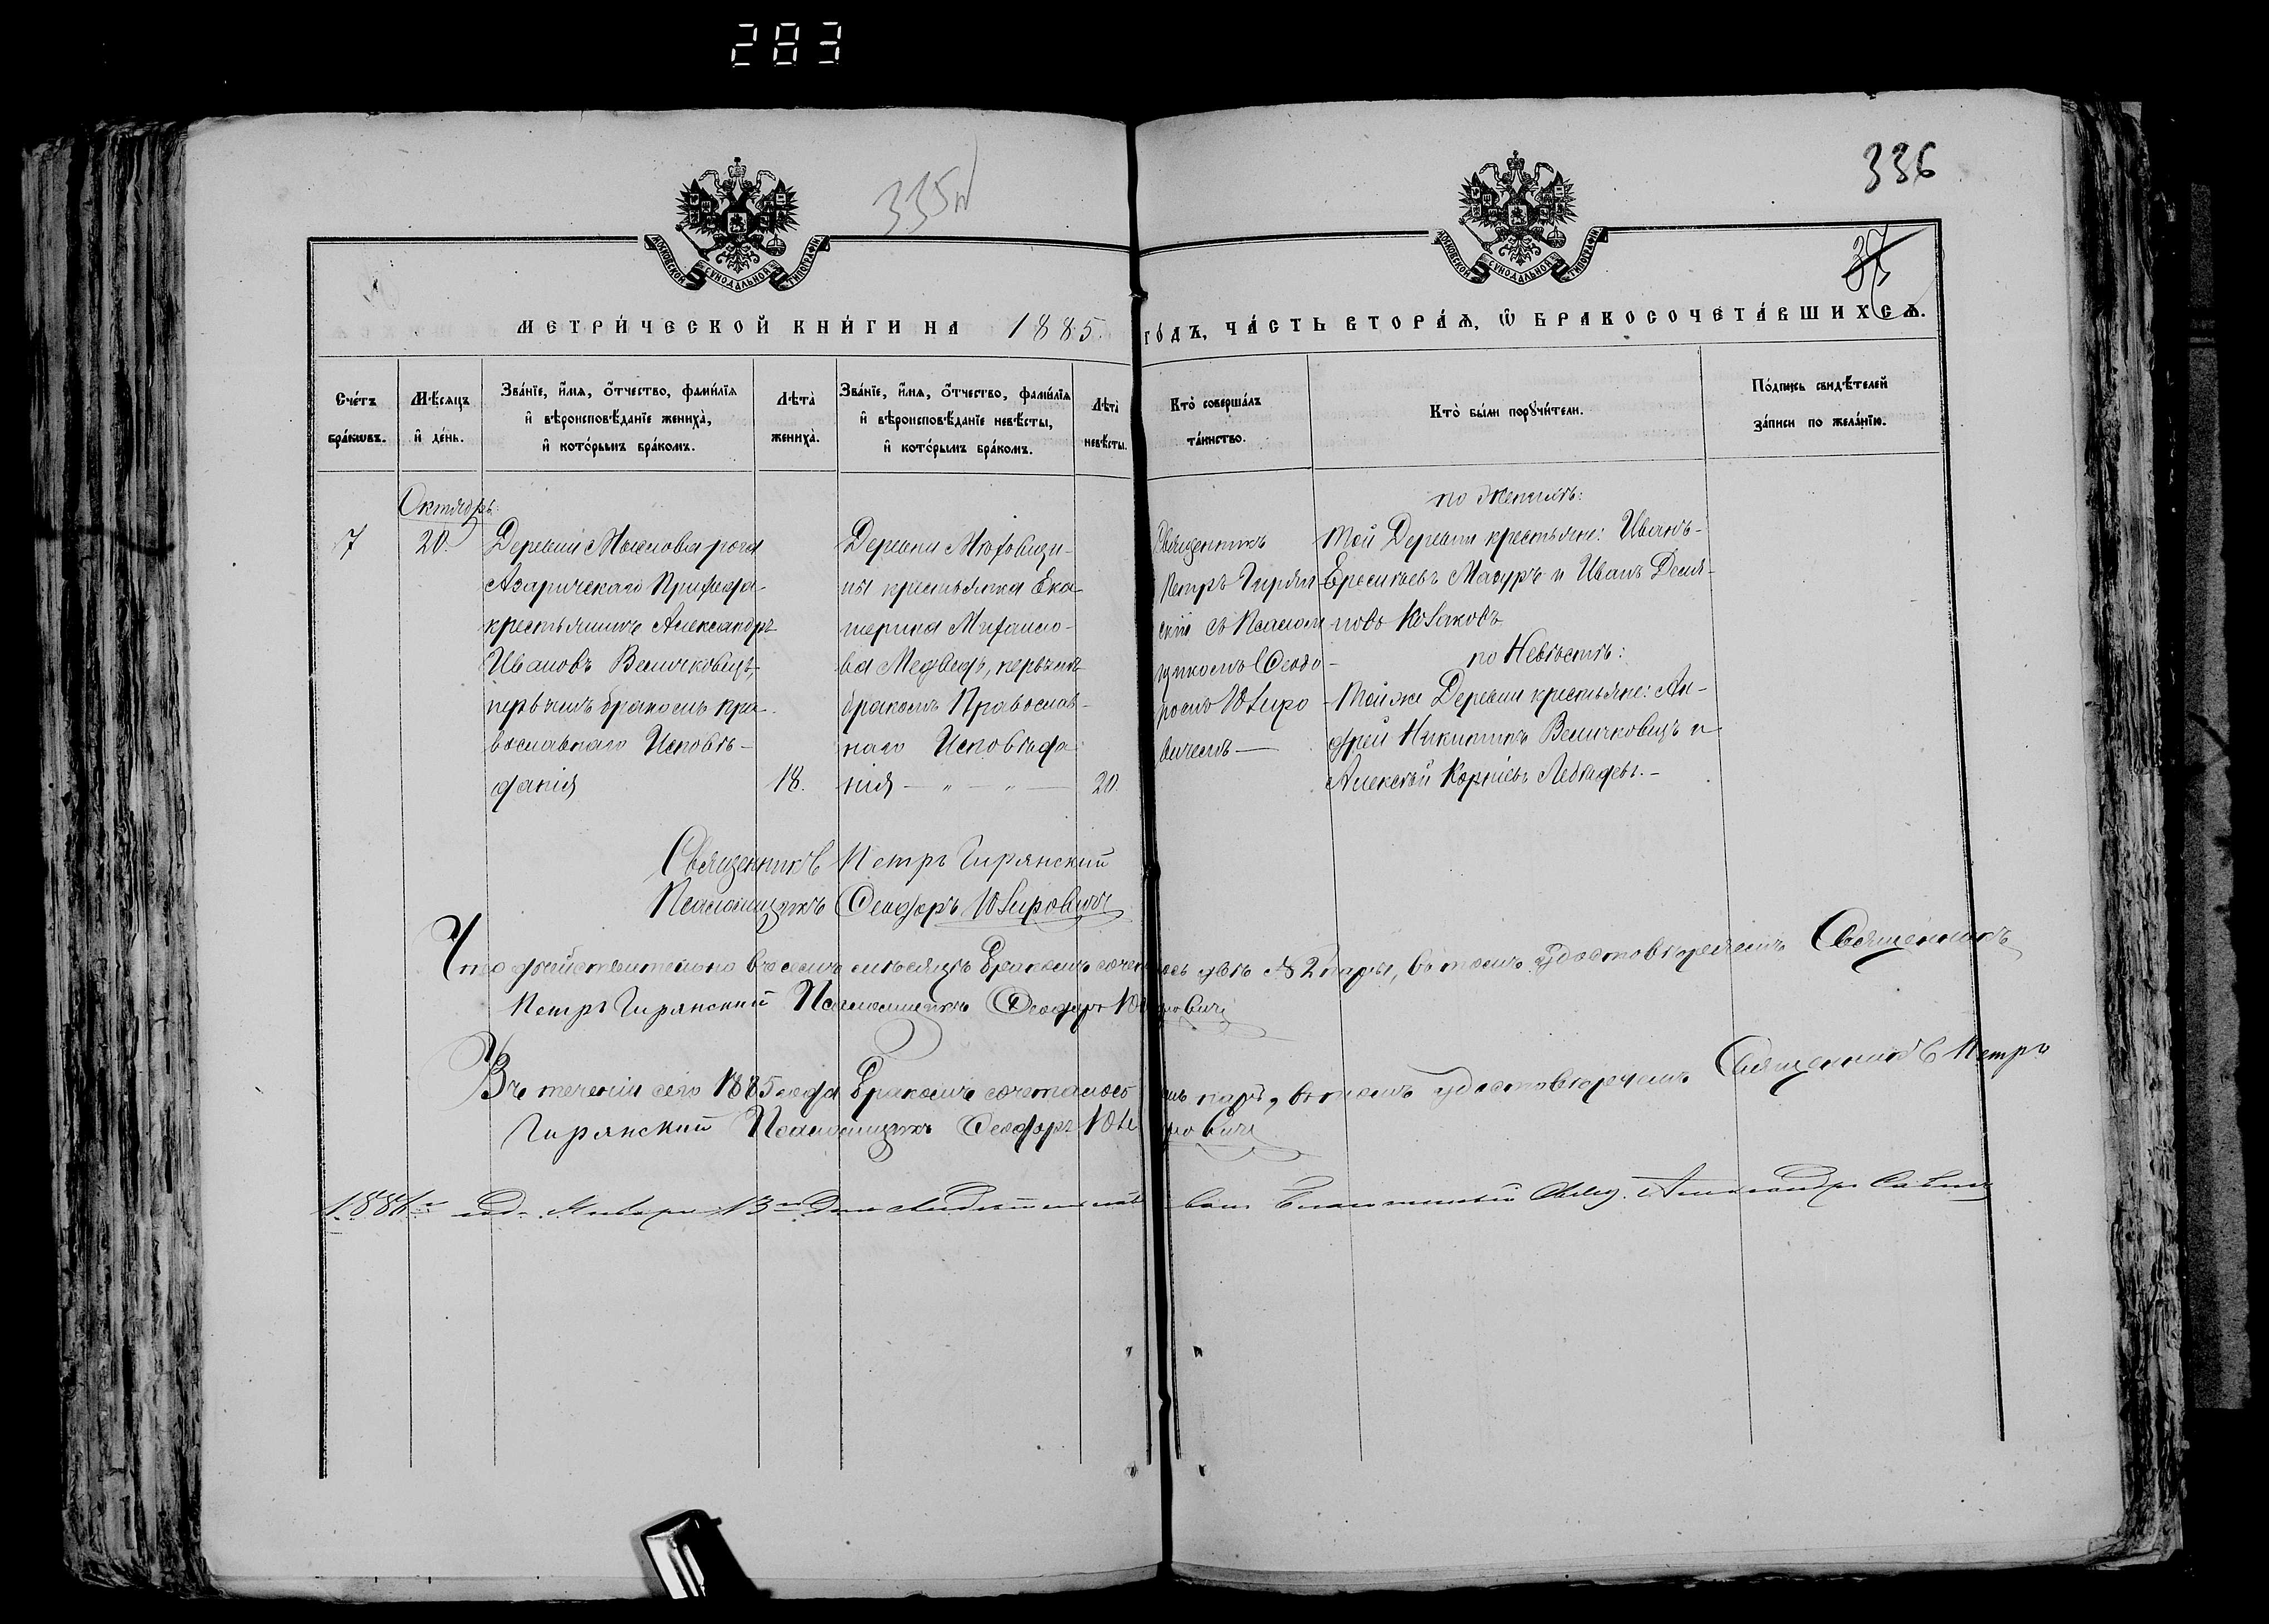 283
335
336
МОСКОВСКОЙ СѴНОДАЛЬНОЙ ТИПОГРАФІИ
МОСКОВСКОЙ СѴНОДАЛЬНОЙ ТИПОГРАФІИ
МЕТРИ́ЧЕСКОЙ КНИ́ГИ НА 1885. ГО́ДЪ, ЧА́СТЬ ВТОРА́Ѧ, Ѽ БРАКОСОЧЕТА́ВШИХСѦ.
Сче́тъ
бра́кѡвъ.
Мѣ́сяцъ
и҆ де́нь.
Зва́нїе, и҆́мѧ, ѻ҆́тчество, фами́лїѧ
и҆ вѣроисповѣ́данїе жениха̀,
и҆ кото́рымъ бра́комъ.
Лѣта̀
жениха̀.
Зва́нїе, и҆́мѧ, ѻ҆́тчество, фами́лїѧ
и҆ вѣроисповѣ́данїе невѣ́сты,
и҆ кото́рымъ бра́комъ.
Лѣта̀
невѣ́сты.
Кто̀ соверша́лъ
та́инство.
Кто̀ бы́ли порꙋчи́тели.
По́дпись свидѣ́телей
за́писи по жела́нїю.
Октябрь.
7
20.
Деревни
Азаричскаго Прихода
крестьянинъ Александръ
Ивановъ Величковецъ,
первымъ бракомъ пра-
вославнаго Исповѣ-
данія
18.
Деревни
ны крестьянка Ека-
терина Михаило-
ва Медведь, первымъ
бракомъ Православ-
наго Исповѣда
нія — " — " —
20.
Священникъ
Петръ Гирян-
скій съ Псалом
щикомъ Ѳеодо-
ромъ Юзиро
вичемъ —
по Женихѣ:
той Деревни крестьяне: Иванъ
Мазуръ и Иванъ Деми-
довъ Козаковъ
по Невѣстѣ:
той же Деревни крестьяне: Ан-
дрей Никитинъ Величковецъ и
Алексѣй Корнѣевъ Лебедевъ.—
Священникъ Петръ Гирянский
Псаломщикъ Ѳеодоръ Юзировичъ
Что дѣйствительно въ семъ мѣсяцѣ бракомъ сочеталось двѣ № 2 пары, въ томъ удостовѣряемъ Священникъ
Петръ Гирянский Псаломщикъ Ѳеодоръ Юзировичъ
Въ теченіи сего 1885 года бракомъ сочеталось паръ, въ томъ удостовѣряемъ Священникъ Петръ
Гирянский Псаломщикъ Ѳеодоръ Юзировичъ
1886 го года Января 13 дня Александръ